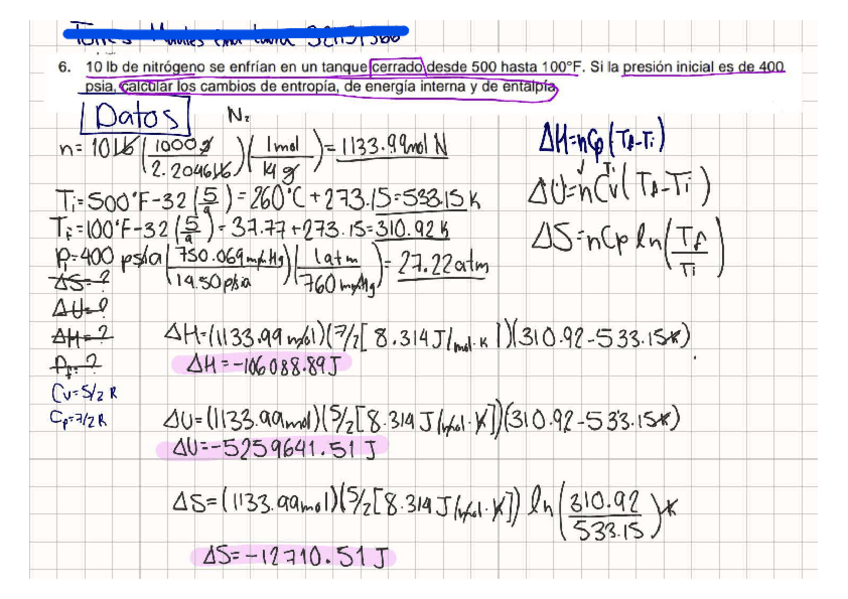 6. 10 lb de nitrógeno se enfrían en un tanque cerrado desde 500 hasta 100°F. Si la presión inicial es de 400
psia, calcular los cambios de entropía, de energía interna y de entalpía
Datos
N₂
n= 10 lb (1000g / 2.2046 lb) (1mol / 14 g) = 1133.99mol N
Ti=500°F-32 (5/9) = 260°C + 273.15=533.15 K
Tf=100°F-32 (5/9) = 37.77+273.15=310.92 K
Pi=400 psia (750.069mmHg / 14.50 psia) (1atm / 760 mmHg) = 27.22 atm
ΔS=?
ΔU=?
ΔH=?
Pf=?
Cv=5/2 R
Cp=7/2 R
ΔH=nCp (Tf-Ti)
ΔU=nCv (Tf-Ti)
ΔS=nCp ln (Tf / Ti)
ΔH=(1133.99 mol) (7/2 [ 8.314 J/mol·K ]) (310.92-533.15K)
ΔH=-106088.89 J
ΔU=(1133.99mol) (5/2 [8.314 J/mol·K]) (310.92-533.15K)
ΔU=-5259641.51 J
ΔS=(1133.99mol) (5/2 [8.314 J/mol·K]) ln (310.92 / 533.15) K
ΔS=-12710.51 J